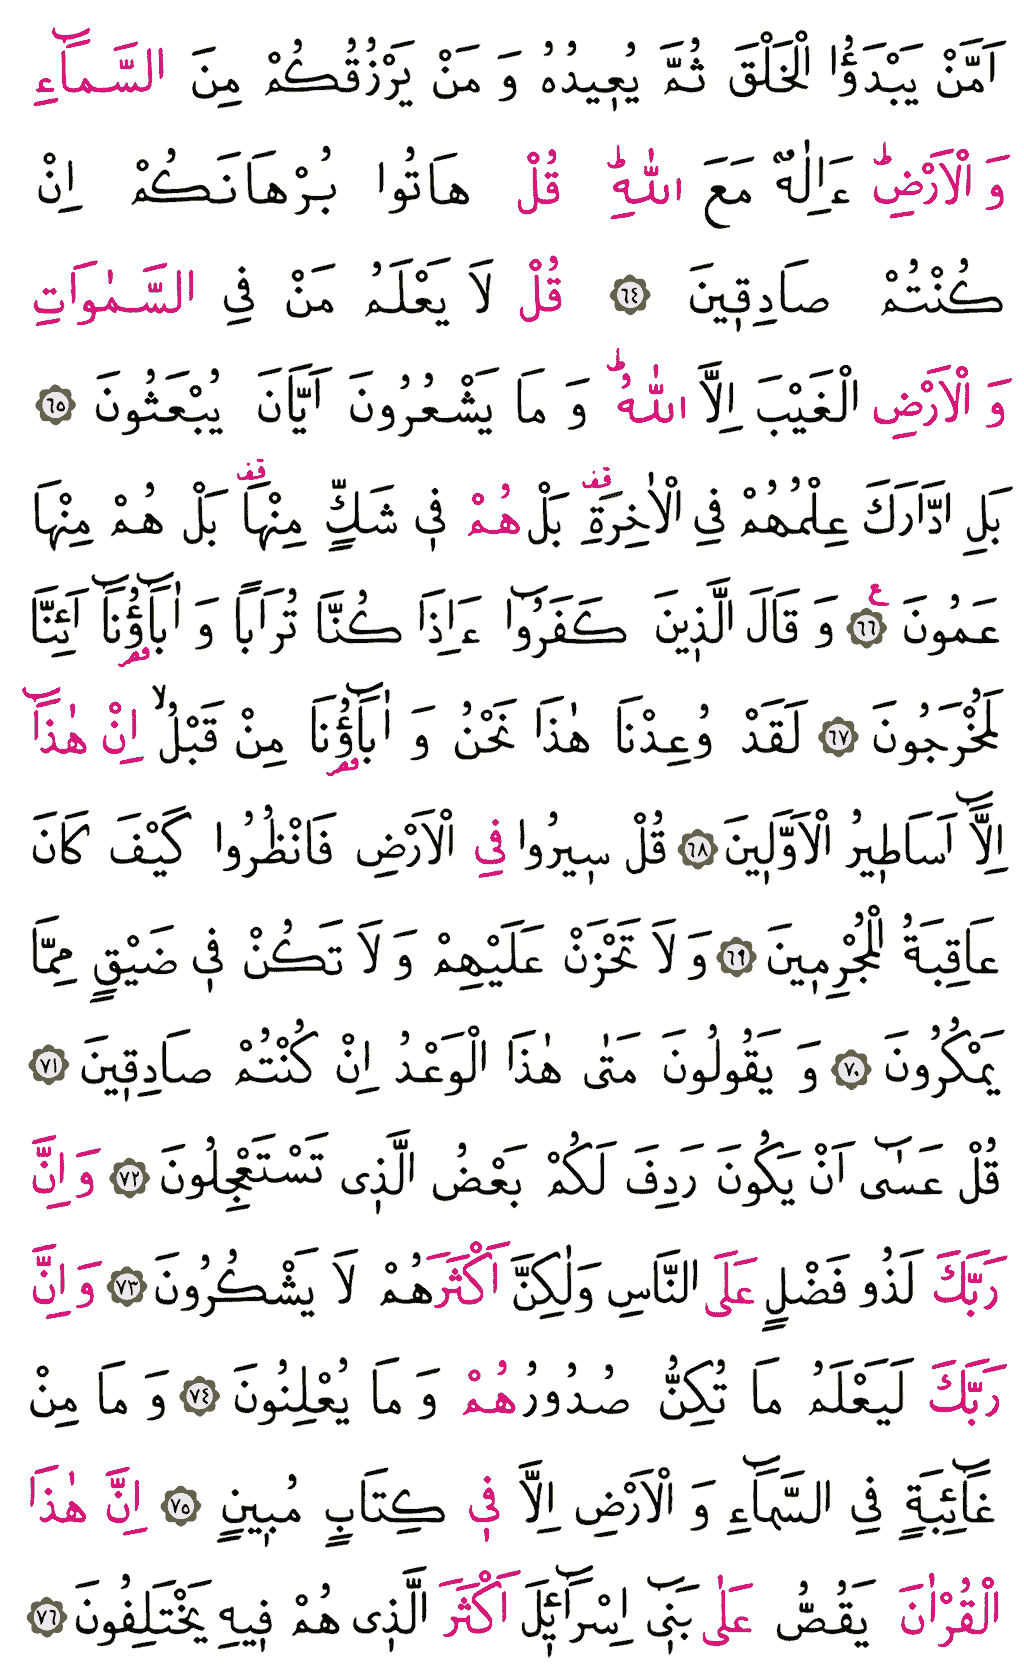 اَمَّنْ يَبْدَؤُا الْخَلْقَ ثُمَّ يُعٖيدُهُ وَ مَنْ يَرْزُقُكُمْ مِنَ السَّمَٓاءِ
وَ الْاَرْضِؕ ءَاِلٰهٌ مَعَ اللّٰهِؕ قُلْ هَاتُوا بُرْهَانَكُمْ اِنْ
كُنْتُمْ صَادِقٖينَ ﴿٦٤﴾ قُلْ لَا يَعْلَمُ مَنْ فِي السَّمٰوَاتِ
وَ الْاَرْضِ الْغَيْبَ اِلَّا اللّٰهُؕ وَ مَا يَشْعُرُونَ اَيَّانَ يُبْعَثُونَ ﴿٦٥﴾
بَلِ ادَّارَكَ عِلْمُهُمْ فِي الْاٰخِرَةِࣞ بَلْ هُمْ فٖي شَكٍّ مِنْهَاࣞ بَلْ هُمْ مِنْهَا
عَمُونَ ﴿٦٦﴾ ع وَ قَالَ الَّذٖينَ كَفَرُٓوا ءَاِذَا كُنَّا تُرَابًا وَ اٰبَٓاؤُنَٓا اَئِنَّا
لَمُخْرَجُونَ ﴿٦٧﴾ لَقَدْ وُعِدْنَا هٰذَا نَحْنُ وَ اٰبَٓاؤُنَا مِنْ قَبْلُۙ اِنْ هٰذَٓا
اِلَّٓا اَسَاطٖيرُ الْاَوَّلٖينَ ﴿٦٨﴾ قُلْ سٖيرُوا فِي الْاَرْضِ فَانْظُرُوا كَيْفَ كَانَ
عَاقِبَةُ الْمُجْرِمٖينَ ﴿٦٩﴾ وَ لَا تَحْزَنْ عَلَيْهِمْ وَ لَا تَكُنْ فٖي ضَيْقٍ مِمَّا
يَمْكُرُونَ ﴿٧٠﴾ وَ يَقُولُونَ مَتٰى هٰذَا الْوَعْدُ اِنْ كُنْتُمْ صَادِقٖينَ ﴿٧١﴾
قُلْ عَسٰٓى اَنْ يَكُونَ رَدِفَ لَكُمْ بَعْضُ الَّذٖى تَسْتَعْجِلُونَ ﴿٧٢﴾ وَ اِنَّ
رَبَّكَ لَذُو فَضْلٍ عَلَى النَّاسِ وَلٰكِنَّ اَكْثَرَهُمْ لَا يَشْكُرُونَ ﴿٧٣﴾ وَ اِنَّ
رَبَّكَ لَيَعْلَمُ مَا تُكِنُّ صُدُورُهُمْ وَ مَا يُعْلِنُونَ ﴿٧٤﴾ وَ مَا مِنْ
غَٓائِبَةٍ فِي السَّمَٓاءِ وَ الْاَرْضِ اِلَّا فٖي كِتَابٍ مُبٖينٍ ﴿٧٥﴾ اِنَّ هٰذَا
الْقُرْاٰنَ يَقُصُّ عَلٰى بَنٖٓى اِسْرَٓائٖلَ اَكْثَرَ الَّذٖى هُمْ فٖيهِ يَخْتَلِفُونَ ﴿٧٦﴾